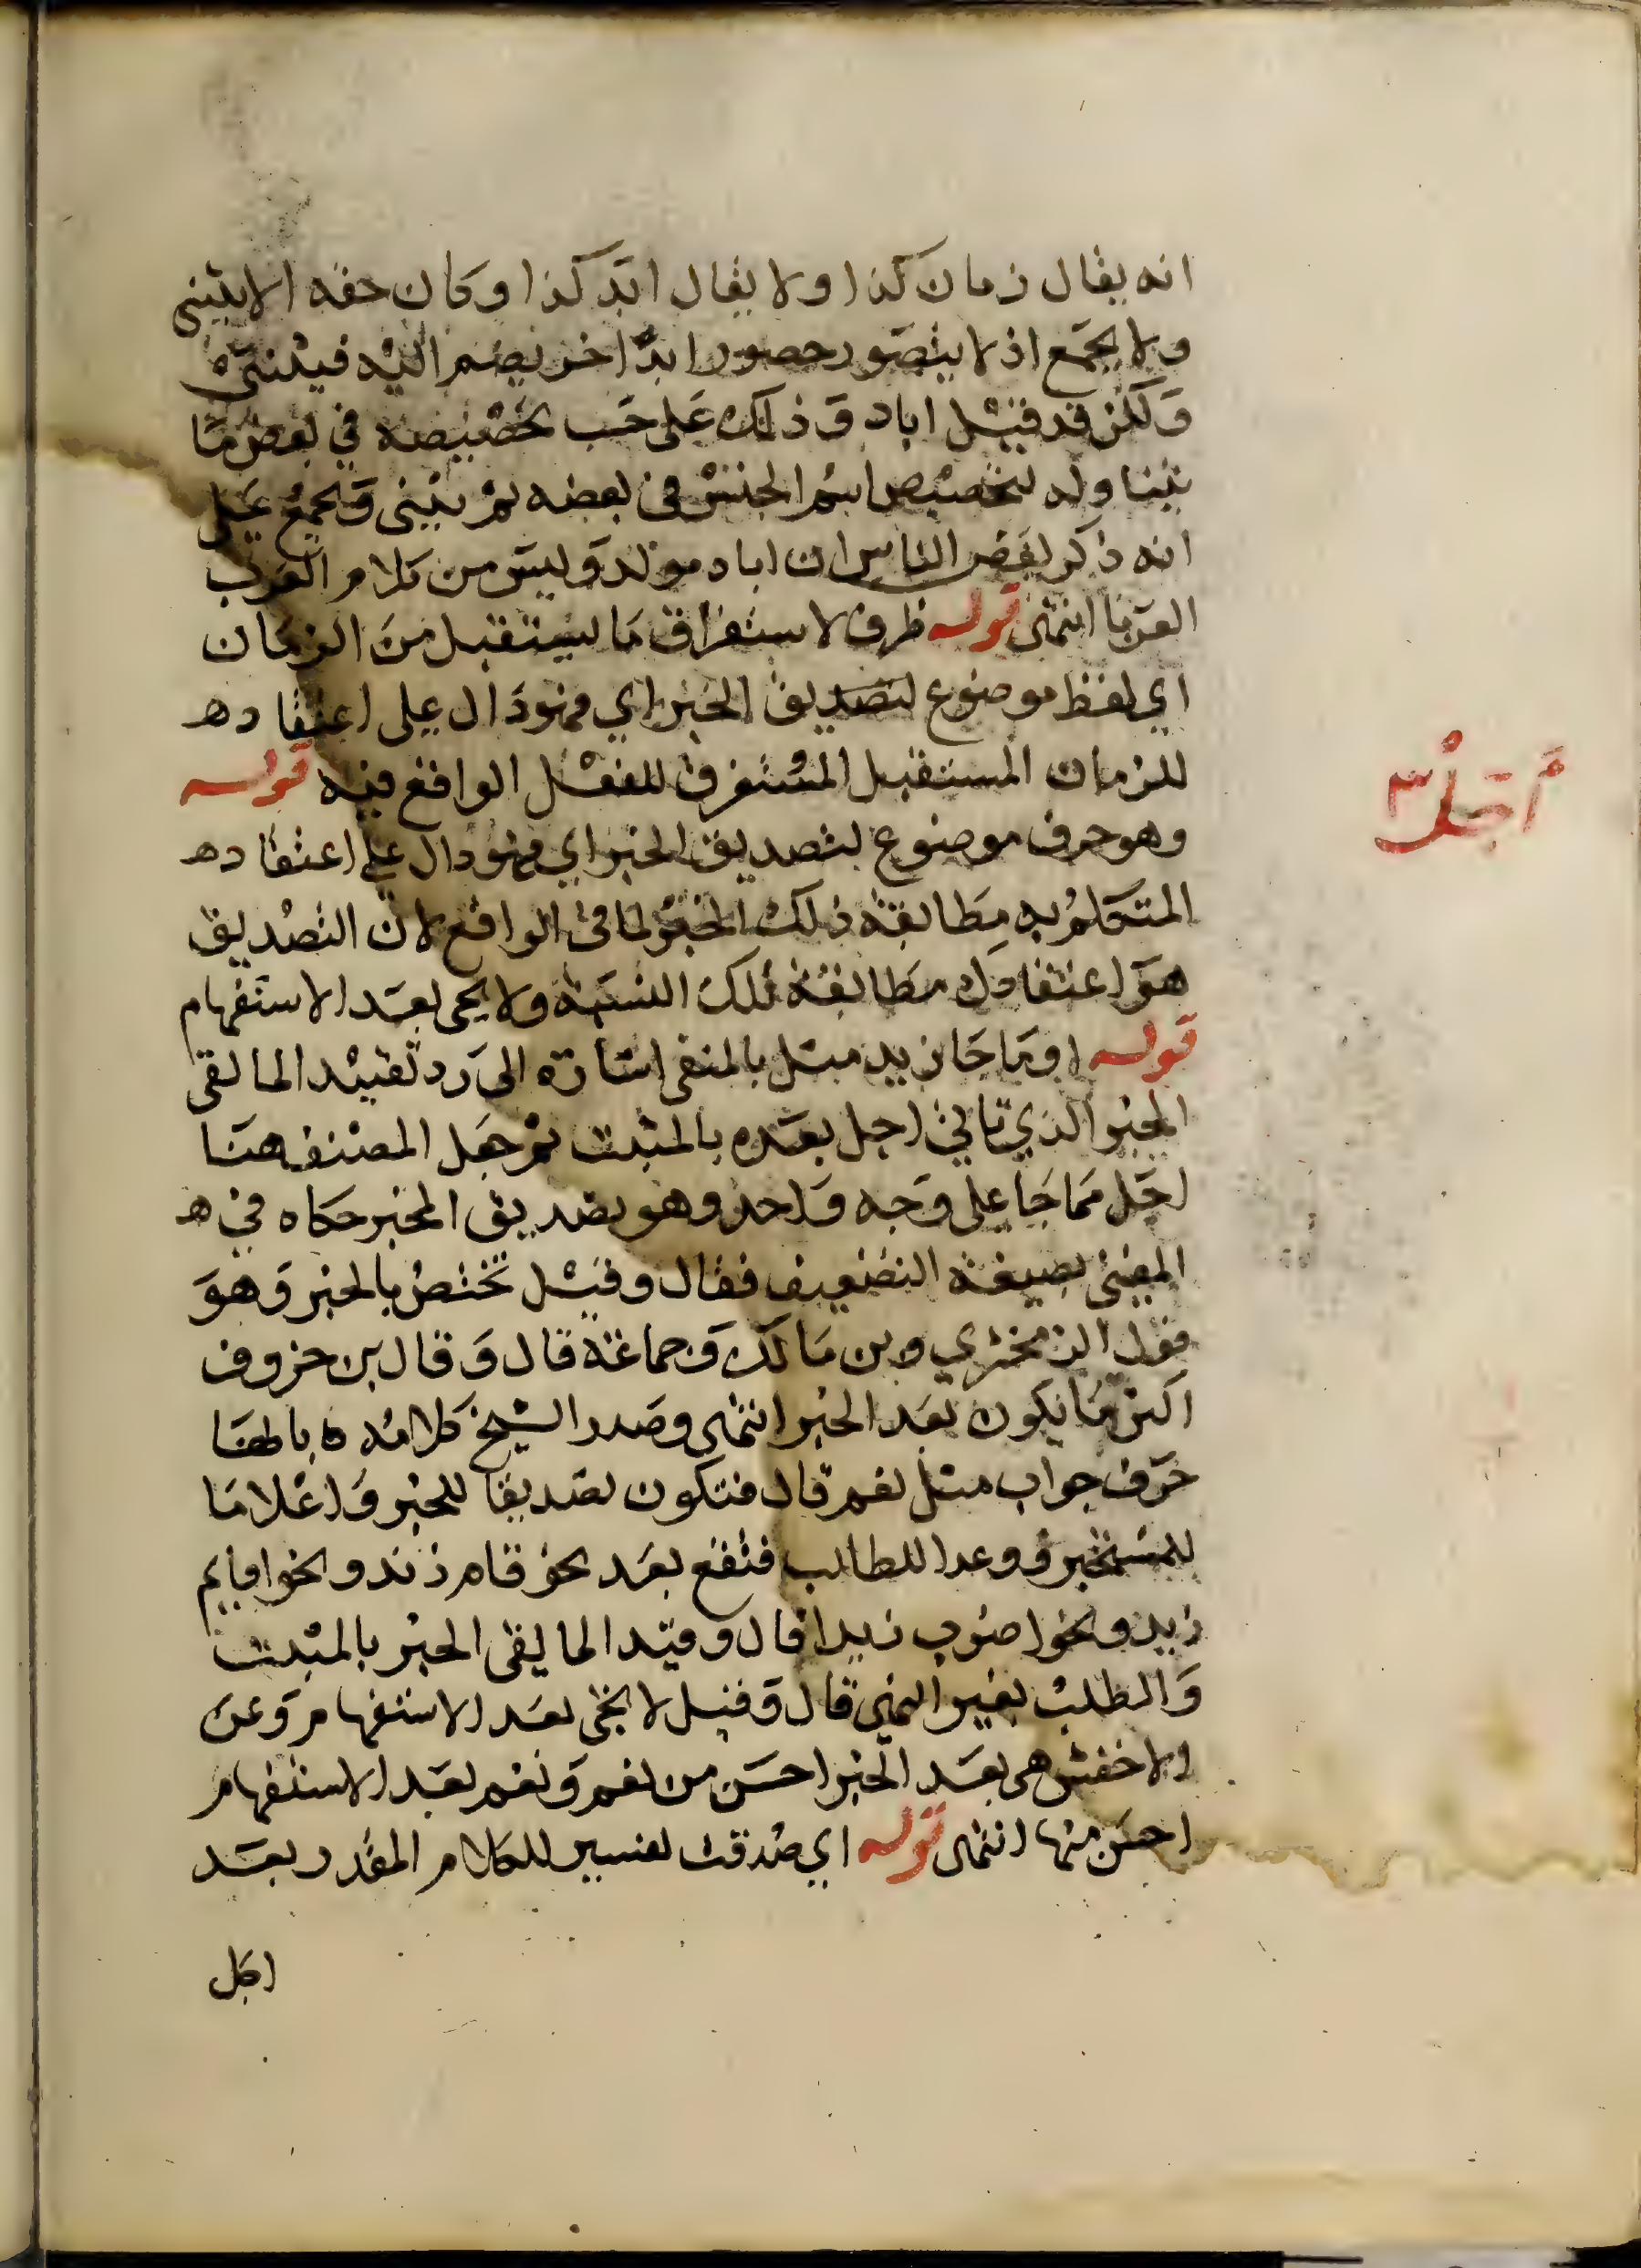 انه يقال زمان كذا ولا يقال ابد كذا وكان حقه الا يثنى
ولا يجمع اذ لا يتصور حصور ابدٌ اخر يضم اليه فيثنى ه
ولكن قد قيل اباد وذلك على حسب تخصيصه في بعض ما
يتناوله لتخصيص اسم الجنس في بعضه ثم يثنى ويجمع على
انه ذكر بعض الناس ان اباد مولد وليس من كلام العرب
العربا انتهى قوله ظرف لاستغراق ما يستقبل من الزمان
اي لفظ موضوع لتصديق الخبر اي فهو دال على اعتقاد ه
للزمان المستقبل المستغرق للفعل الواقع فيه قوله
أجل ٣
وهو حرف موضوع لتصديق الخبر اي فهو دال على اعتقاد ه
المتكلم به مطابقة ذلك الخبر لما في الواقع لان التصديق
هو اعتقادك مطابقة تلك النسبة ولا يجى بعد الاستفهام
قوله او ما جا زيد مثل بالمنفى اشارة الى رد تقييد المالقى
الخبر الذي تاتي اجل بعده بالمثبت ثم جعل المصنف هنا
اجل مما جا على وجه واحد وهو تصديق المخبر حكاه في ه
المغنى بصيغة التضعيف فقال وقيل تختص بالخبر وهو
قول الزمخشري وبن مالك وجماعة قال وقال بن خروف
اكثر ما يكون بعد الخبر انتهى وصدر الشيخ كلامه ه بانها
حرف جواب مثل نعم قال فتكون تصديقا للخبر واعلاما
للمستخبر ووعدا للطالب فتقع بعد نحو قام زيد ونحو اقايم
زيد ونحو اضرب زيدا قال وقيد المالقى الخبر بالمثبت
والطلب بغير النهى قال وقيل لا تجى بعد الاستفهام وعن
الاخفش هى بعد الخبر احسن من نعم ونعم بعد الاستفهام
احسن منها انتهى قوله اي صدقت تفسير للكلام المقدر بعد
اجل